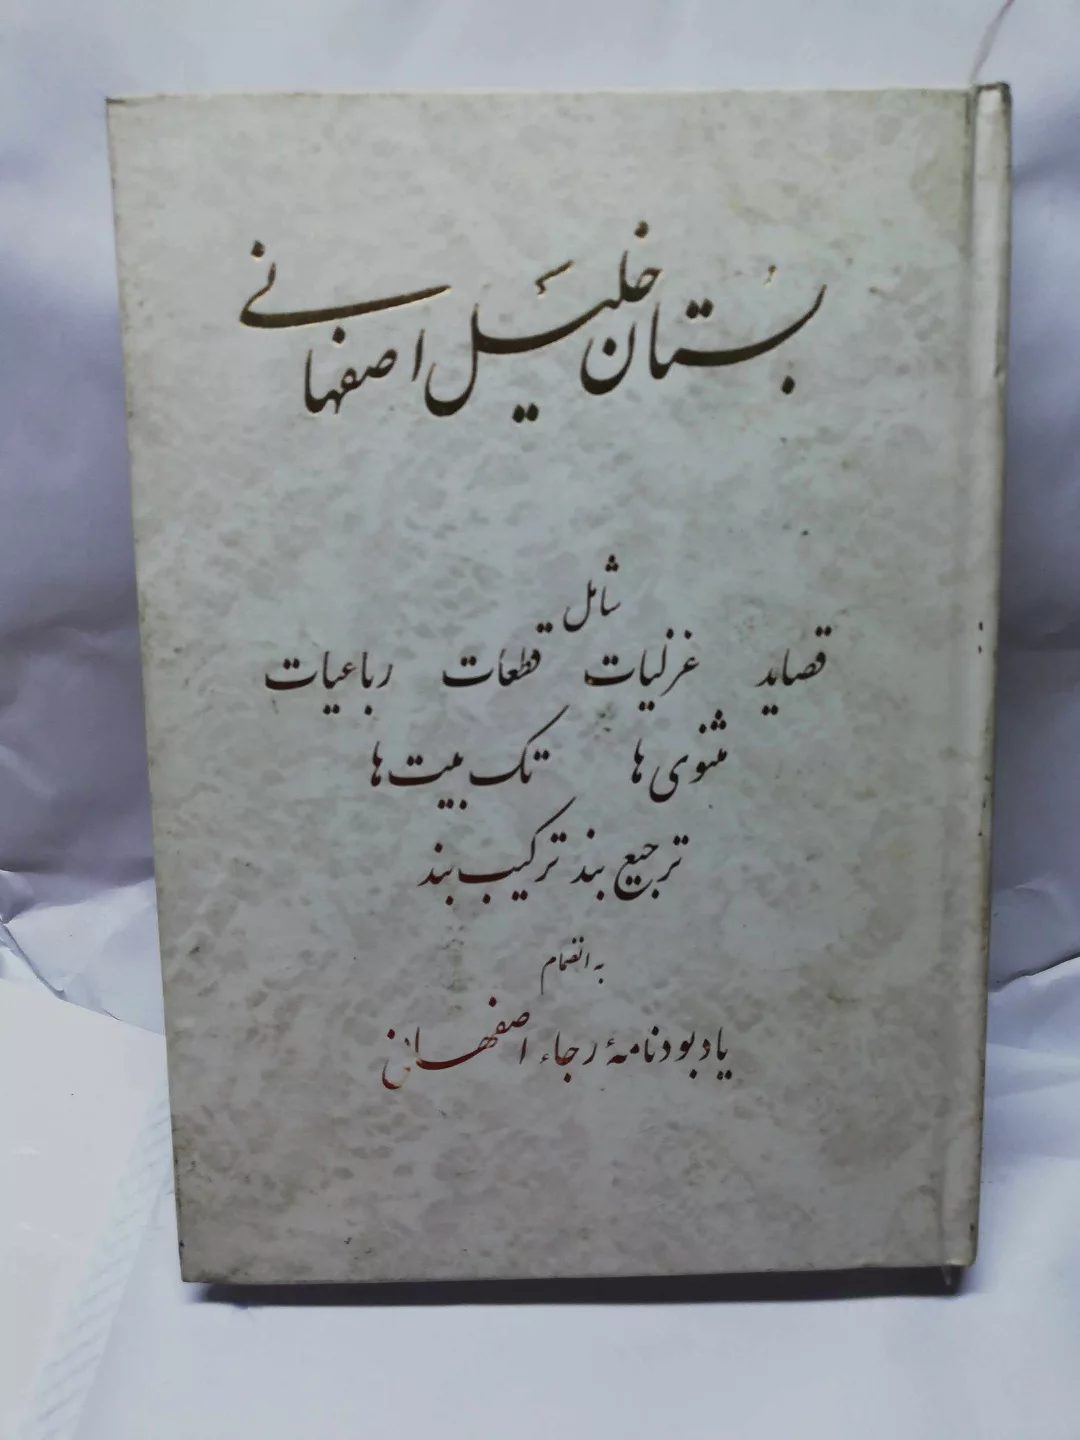 بُستان خلیل اصفهانی
شامل
قصاید غزلیات قطعات رباعیات
مثنوی ها تک بیت ها
ترجیع بند ترکیب بند
به انضمام
یادبودنامهٔ رجاء اصفهانی